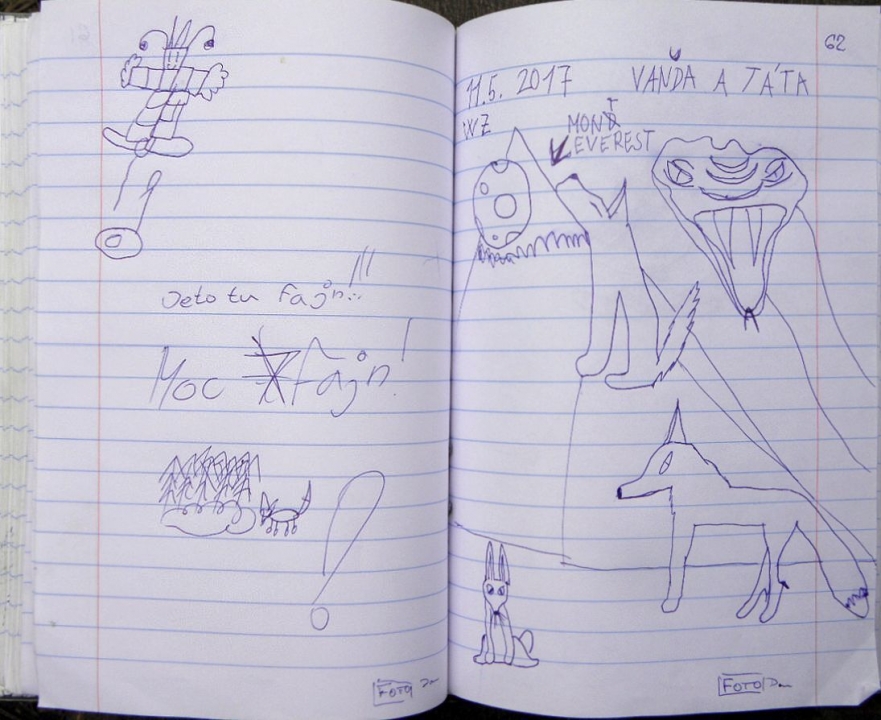 Jeto tu fajn...!!!
Moc fajn!
FOTO
62
11.5. 2017 VAŇĎA A TÁTA
WZ
MONT
EVEREST
FOTO